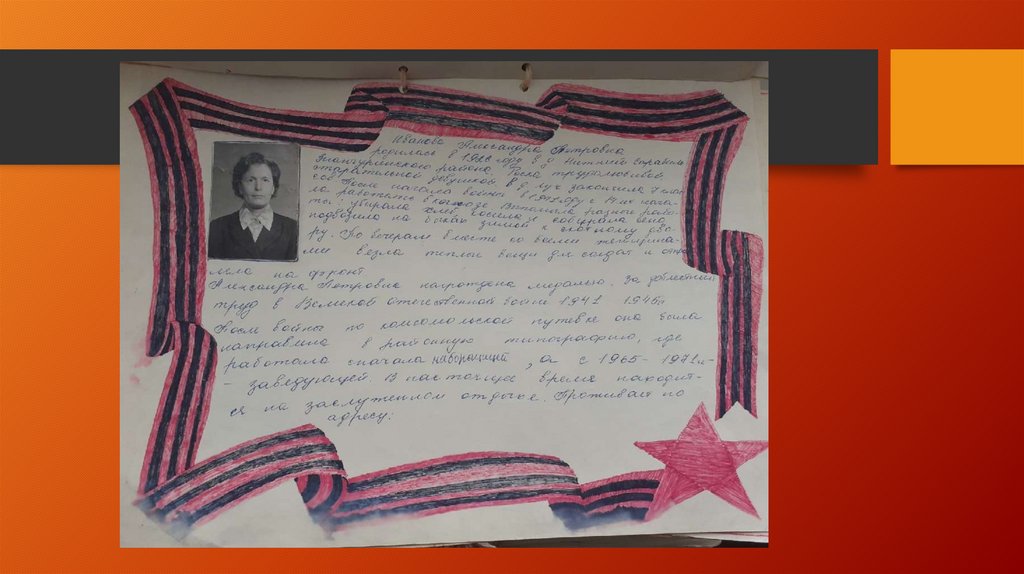 Иванова Александра Петровна
родилась в 1926 году в д. Нижний
района. Росла трудолюбивой,
старательной девушкой. В д. Луч закончила 7 клас-
сов. После начала войны в 1941 году с 14 лет нача-
ла работать в колхозе. Выполняла разные рабо-
ты: убирала хлеб, косила и собирала сено,
подвозила на быках зимой к скотному дво-
ру. По вечерам вместе со всеми женщина-
ми везла теплые вещи для солдат и отпр
ляла на фронт
Александра Петровна награждена медалью. За доблестный
труд в Великой отечественной войне 1941 1945г
После войны по комсомольской путевке она была
направлена в районную типографию, где
работала сначала наборщицей, а с 1965-1971г-
- заведующей. В настоящее время находит-
ся на заслуженном отдыхе. Проживает по
адресу: